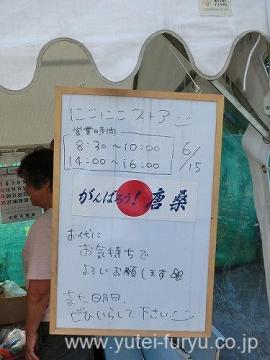 にこにこストアー
営業時間
8:30～10:00
14:00～16:00
6/15
がんばろう!唐桑
お代は
お気持ちで
よろしくお願いします
また明日
ぜひいらして下さい
www.yutei-furyu.co.jp